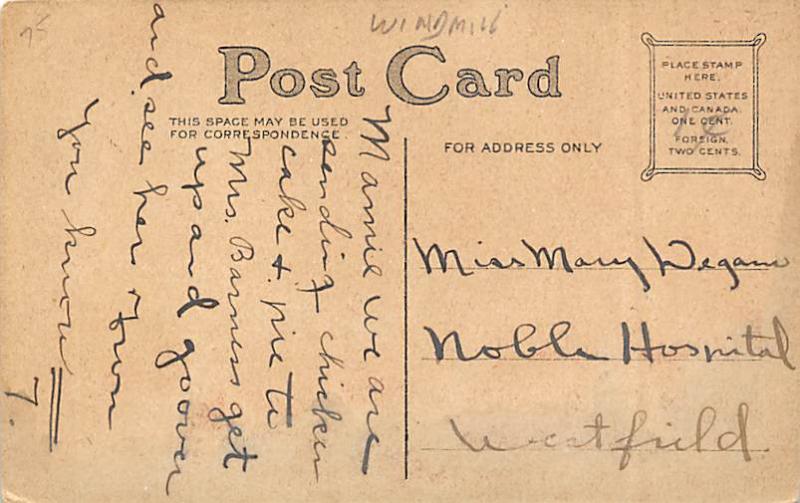 75
WINDMILL
Post Card
THIS SPACE MAY BE USED
FOR CORRESPONDENCE.
FOR ADDRESS ONLY
PLACE STAMP
HERE.
UNITED STATES
AND CANADA.
ONE CENT.
FOREIGN,
TWO CENTS.
Mamie we are
sending chicken
cake & pie to
Mrs. Barnes get
up and go over
and see her from
You know
7.
Miss Mary Degam
Noble Hospital
Westfield